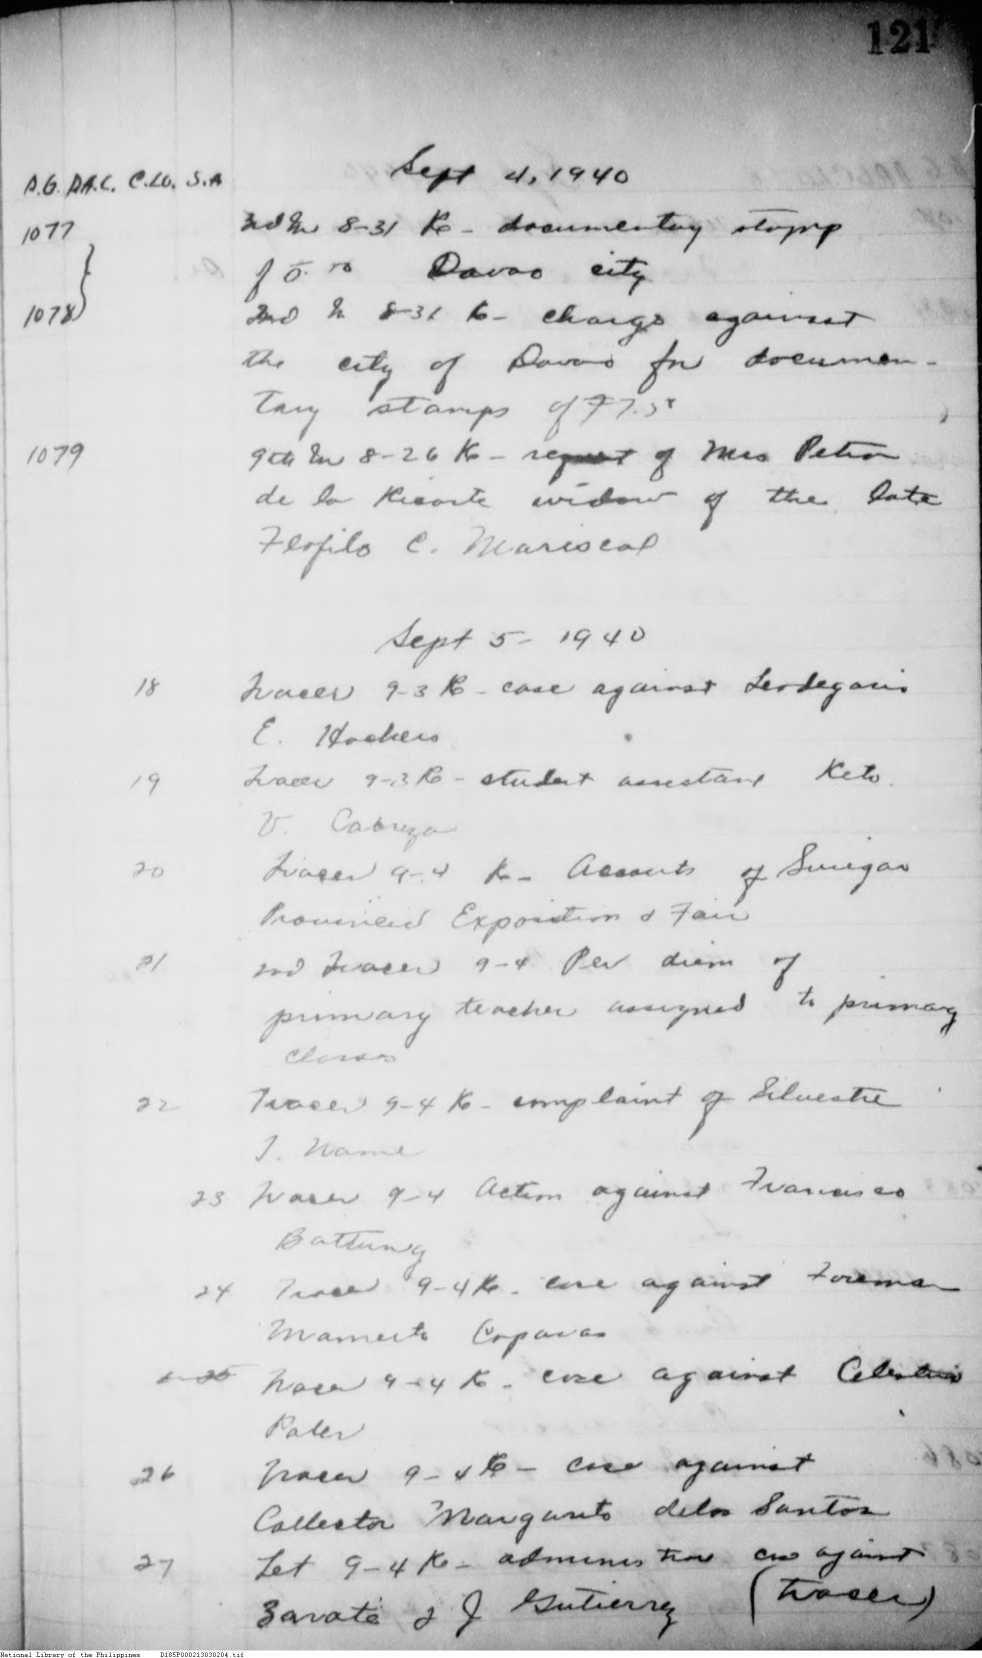 121
Sept 4, 1940
A.G. D.A.C. C.LO. S.A
1077 2nd In 8-31 Kc - documentary stamp
of Davao city
1078 2nd In 8-31 Kc - charge against
the city of Davao for documen-
tary stamps of ₱7.50
1079 9th In 8-26 Kc - request of Mrs Petra
de la widow of the late
Teofilo C. Mariscal
Sept 5 - 1940
18 Tracer 9-3 Kc - case against Leodegario
E.
19 Tracer 9-3 Kc - student assistant
V.
20 Tracer 9-4 Kc - Accounts of Surigao
Provincial Exposition & Fair
21 2nd Tracer 9-4 Per diem of
primary teacher assigned to primary
classes
22 Tracer 9-4 Kc - complaint of Silvestre
23 Tracer 9-4 Action against Francisco
Battung
24 Tracer 9-4 Kc - case against Foreman
Mamerto
25 Tracer 9-4 Kc - case against
26 Tracer 9-4 Kc - case against
Collector Margarito delos Santos
27 Let 9-4 Kc - case against
Zarate & J Gutierrez (Tracer)
National Library of the Philippines D185P000213030204.tif